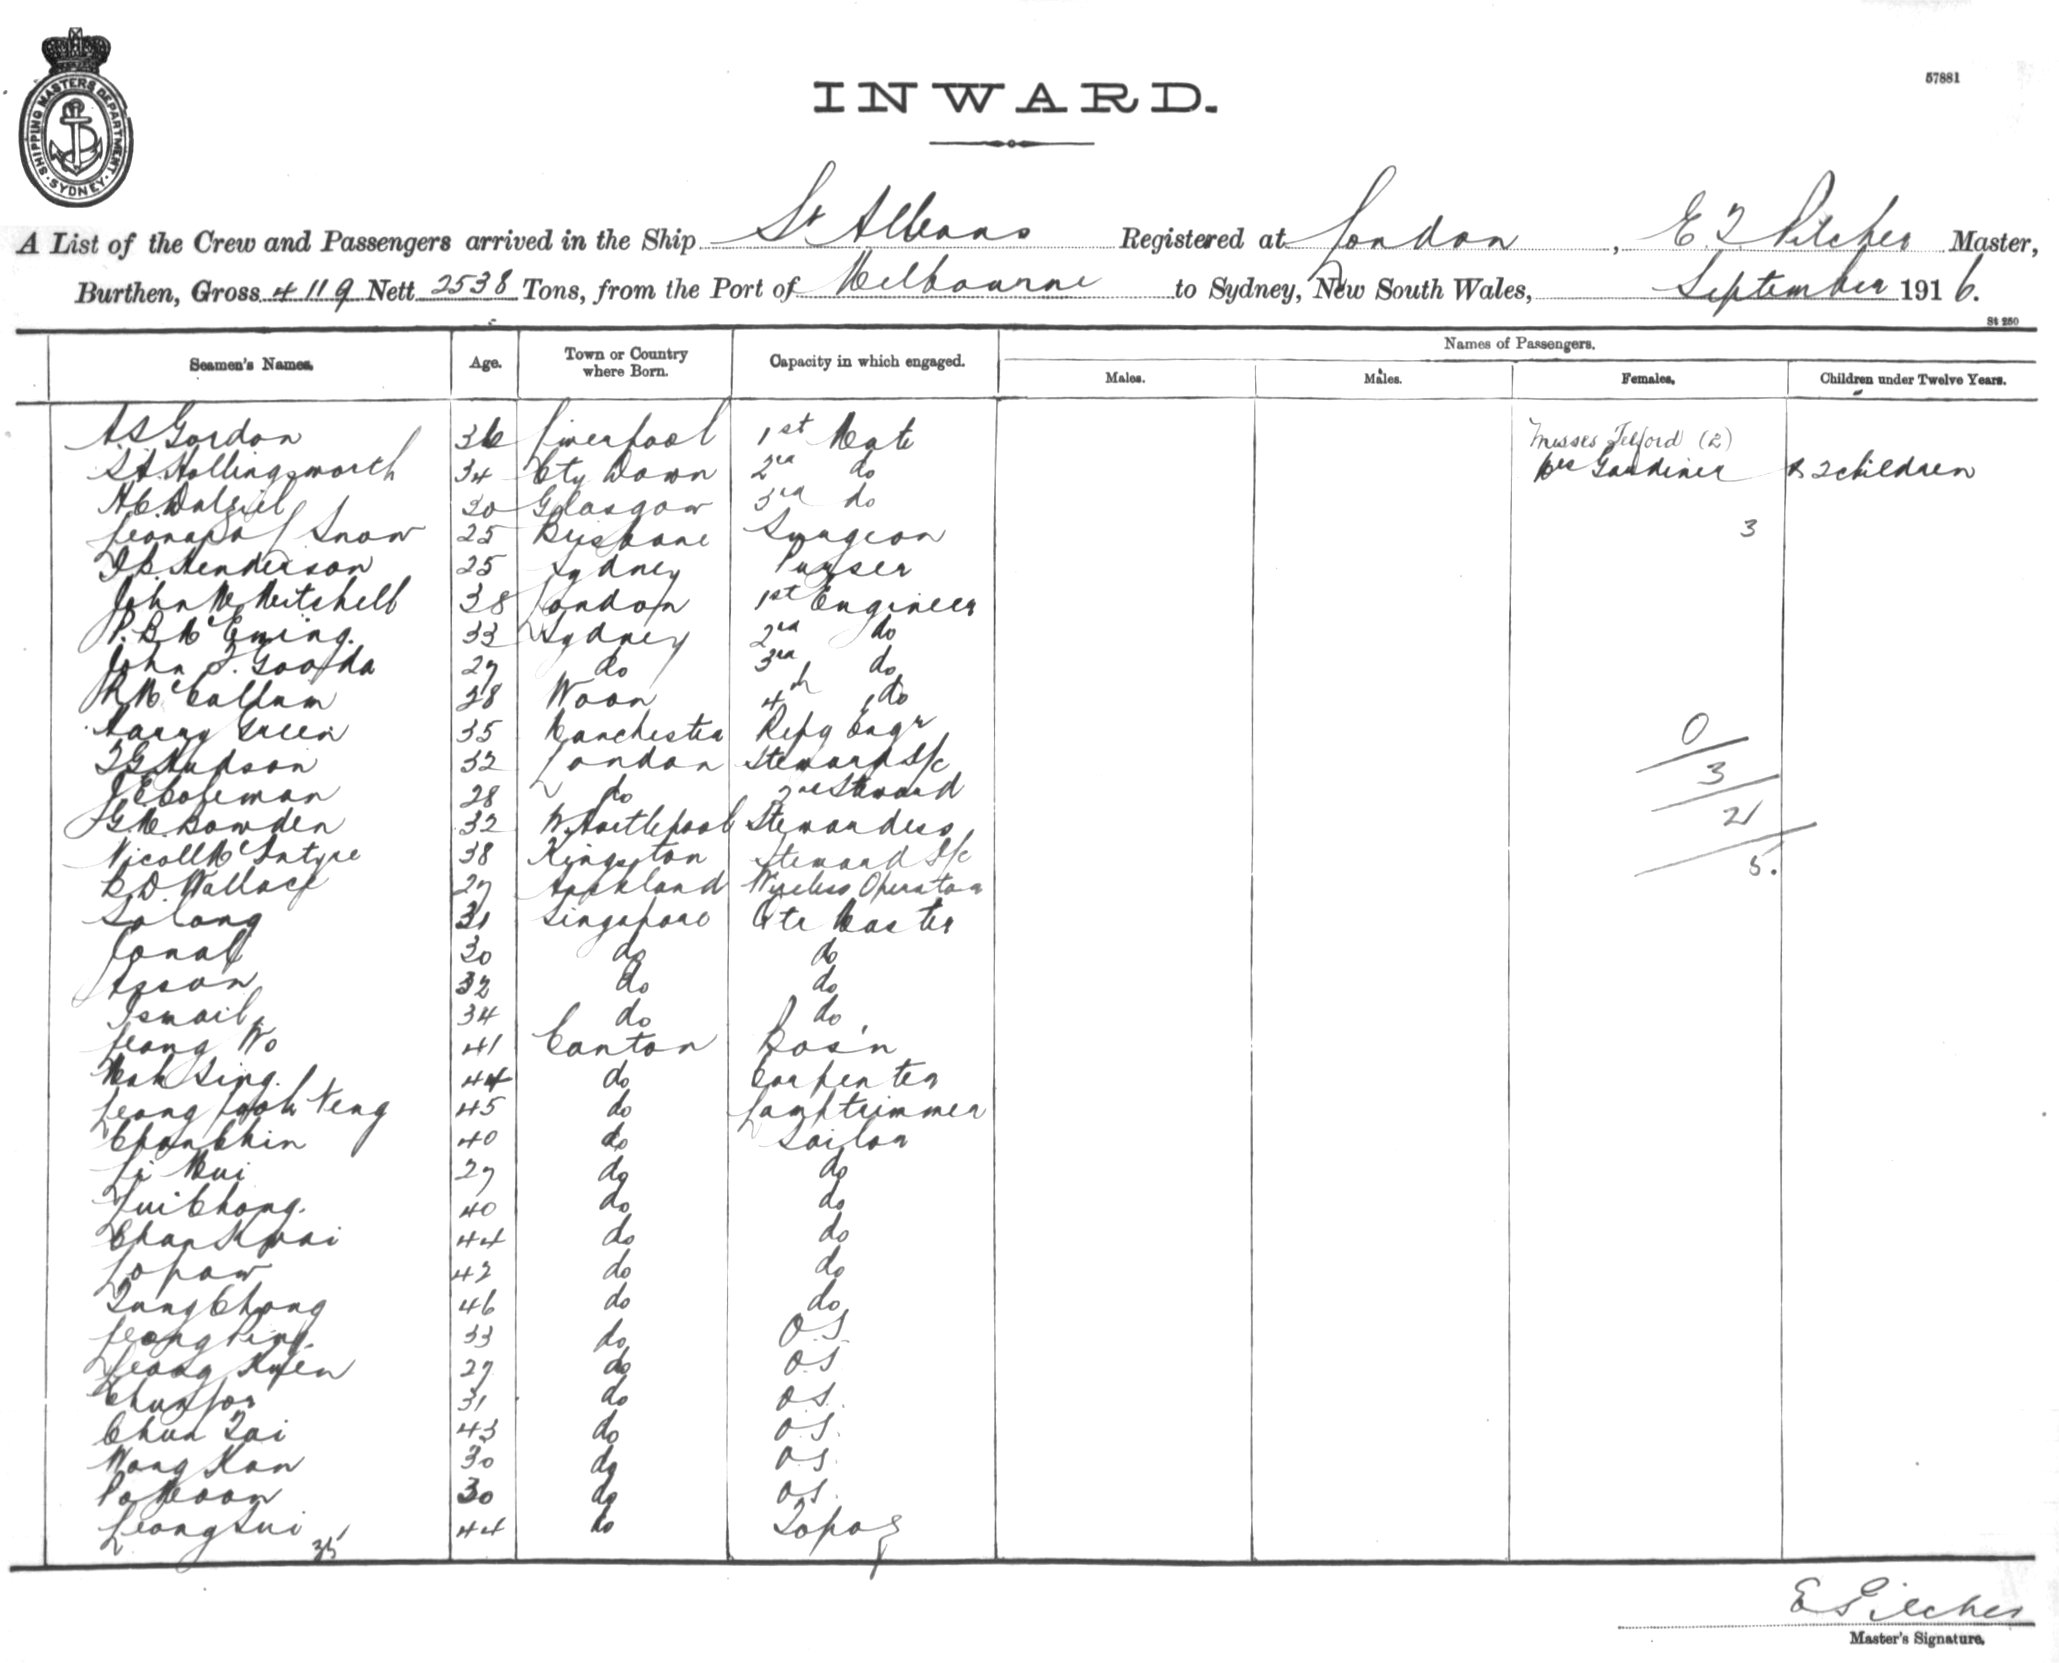 SHIPPING MASTERS DEPARTMENT
SYDNEY
57881
INWARD.
A List of the Crew and Passengers arrived in the Ship St Albans Registered at London, E. T. Pilcher Master,
Burthen, Gross 4119 Nett 2538 Tons, from the Port of Melbourne to Sydney, New South Wales, September 1916.
St 250
Seamen's Names. Age. Town or Country where Born. Capacity in which engaged. Names of Passengers.
Males. Males. Females. Children under Twelve Years.
A. S. Gordon 36 Liverpool 1st Mate Misses Telford (2)
S. A. Hollingsworth 34 Cty Down 2nd do Mrs Gardiner & 2 children
H. C. Dalziel 30 Glasgow 3rd do
Leonard J Snow 25 Brisbane Surgeon 3
Henderson 25 Sydney Purser
John M Mitchell 38 London 1st Engineer
P. B. McEwing 33 Sydney 2nd do
John T. Goodda 27 do 3rd do
R McCallum 28 4th do
Harry Green 35 Manchester Refg Engr 0
T G Hudson 32 London Steward S/c 3
J E Coleman 28 do 2nd Steward 2
G. M. Bowden 32 W. Hartlepool Stewardess
Nicoll McIntyre 38 Kingston Steward S/c 5.
D. Wallace 27 Auckland Wireless Operator
Salong 31 Singapore Qtr Master
Jonal 30 do do
Assan 32 do do
Ismail 34 do do
Leong Wo 41 Canton Bos'n
Mak Sing 44 do Carpenter
Leong Yeng 45 do Lamptrimmer
Chan Chin 40 do Sailor
Li Mui 27 do do
Tui Chong. 40 do do
Chan Kwai 44 do do
Lo Paw 42 do do
Tung Chong 46 do do
Leong Ping 33 do O.S.
Leong Kwen 27 do O.S.
Chun 31 do O.S.
Chun Tai 43 do O.S.
Wong Kan 30 do O.S.
Po Moon 30 do O.S.
Leong Sui 44 do Topas
35
E T Pilcher
Master's Signature.